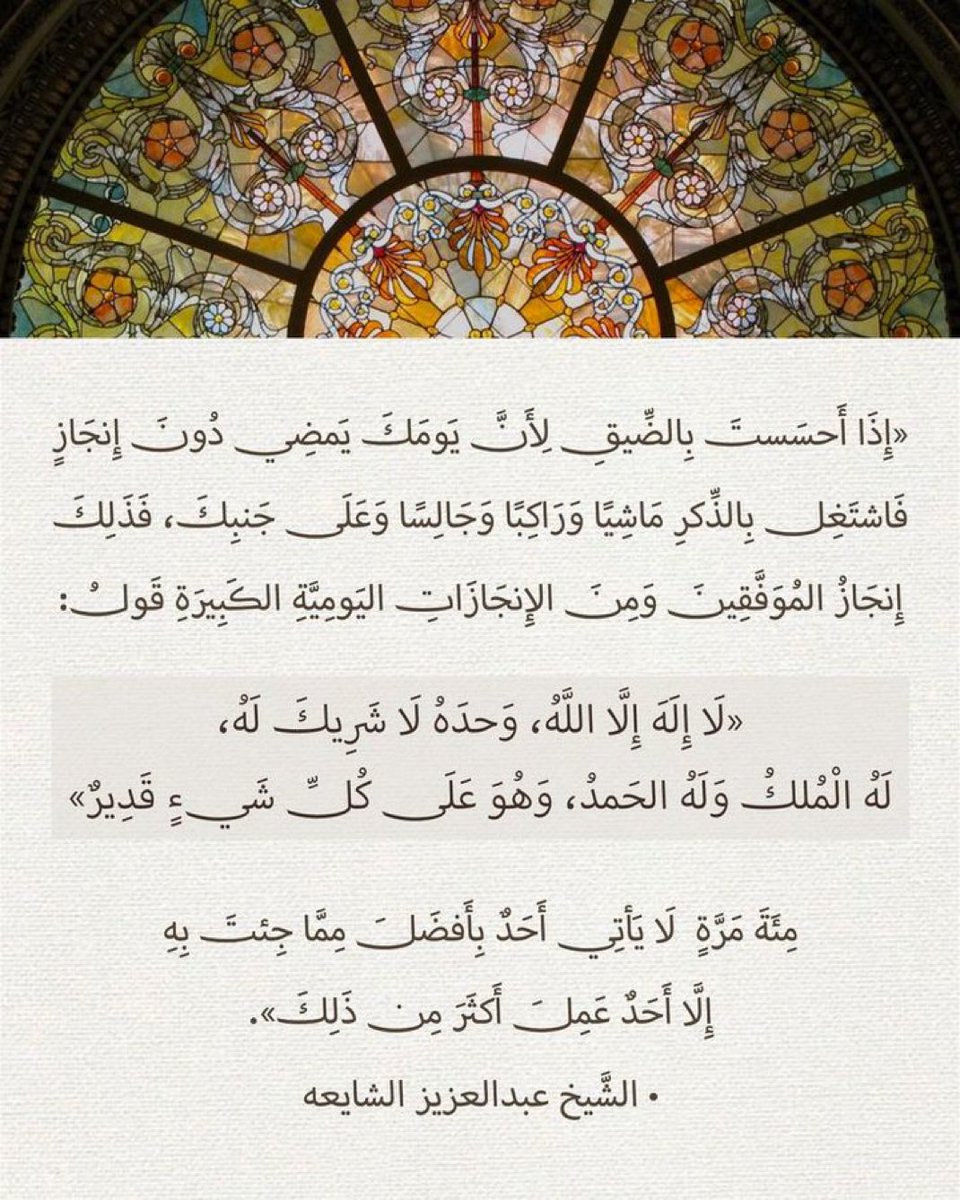 «إِذَا أَحسَستَ بِالضِّيقِ لِأَنَّ يَومَكَ يَمضِي دُونَ إِنجَازٍ
فَاشتَغِل بِالذِّكرِ مَاشِيًا وَرَاكِبًا وَجَالِسًا وَعَلَى جَنبِكَ، فَذَلِكَ
إِنجَازُ المُوَفَّقِينَ وَمِنَ الإِنجَازَاتِ اليَومِيَّةِ الكَبِيرَةِ قَولُ:
«لَا إِلَهَ إِلَّا اللَّهُ، وَحدَهُ لَا شَرِيكَ لَهُ،
لَهُ الْمُلكُ وَلَهُ الحَمدُ، وَهُوَ عَلَى كُلِّ شَيءٍ قَدِيرٌ»
مِئَةَ مَرَّةٍ لَا يَأتِي أَحَدٌ بِأَفضَلَ مِمَّا جِئتَ بِهِ
إِلَّا أَحَدٌ عَمِلَ أَكثَرَ مِن ذَلِكَ».
• الشَّيخ عبدالعزيز الشايعه